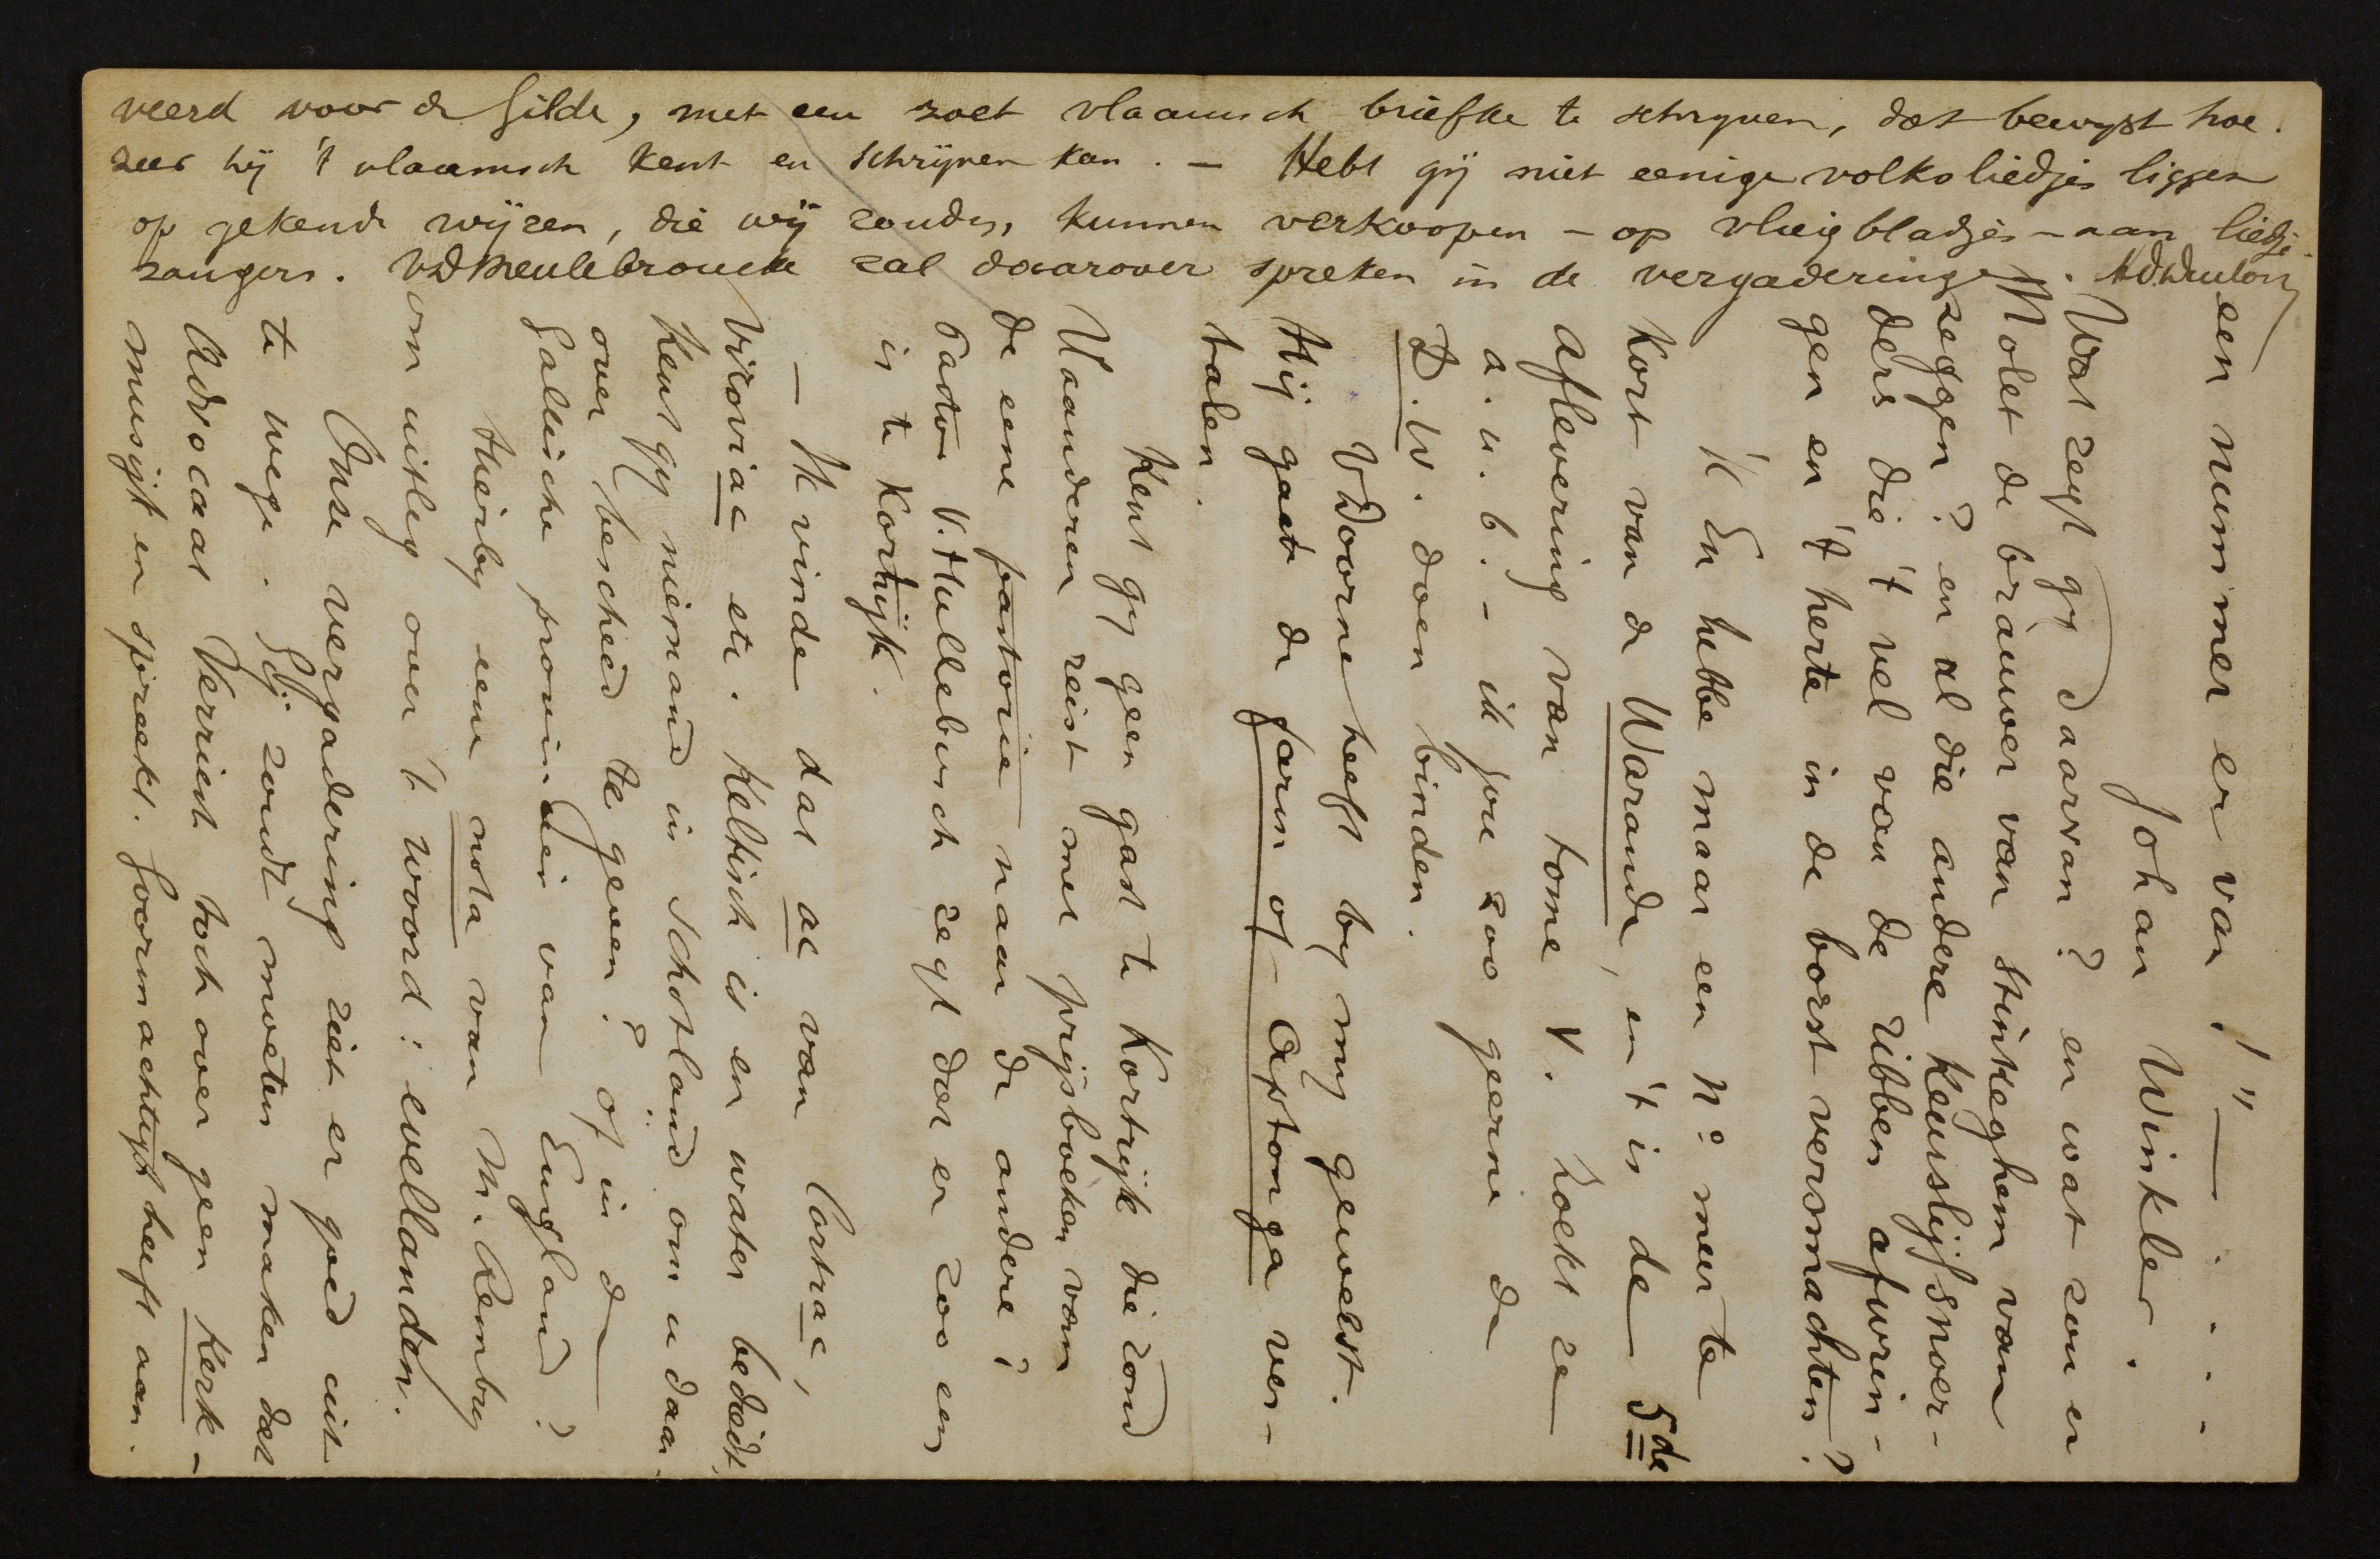 een nummer er van!" — . . . .
Johan Winkler.
Wat zegt gy daarvan? en wat zou er
Molet de brauwer van Stinkeghem van
zeggen? en al die andere keurslijfsnoer-
ders die 't vel van de ribben afwrin-
gen en 't herte in de borst versmachten?
'K En hebbe maar een N° meer te
kort van de Warande, en 't is de 5de
aflevering van tome V. Zoekt ze
a.u.b. - ik zou zoo geerne de
D.W. doen binden.
VDoorne heeft by my geweest.
Hij gaat de farm of Aftonga ver-
talen.
Kent gy geen gast te Kortrijk die rond
Vlaanderen reist met prijsboeken van
de eene pastorie naar de andere?
Pastor V.Hullebusch zegt dat er zoo een
is te Kortrijk.
— 'k vinde dat ac van Cortrac,
Viroviac etc. Keltisch is en water bediedt,
Kent gy niemand in Schotland om u daar-
over bescheed te geven? of in de
Gallische provincien van England?
Hierby eene nota van M. Rembry
om uitleg over 't woord: evellanden.
Onze vergadering ziet er goed uit
te wege. Gij zoudt moeten maken dat
Advocaat Verriest toch over geen Kerk-
musijk en spreekt. Goormachtigh heeft aan-
veerd voor de Gilde, met een zoet vlaamsch briefke te schryven, dat bewyst hoe
zeer hij 't vlaamsch kent en schrijven kan. — Hebt gij niet eenige volksliedjes liggen
op gekende wijzen, die wij zouden kunnen verkoopen — op vliegbladjes — aan liedje-
zangers. VDMeulebroucke zal daarover spreken in de vergaderinge.